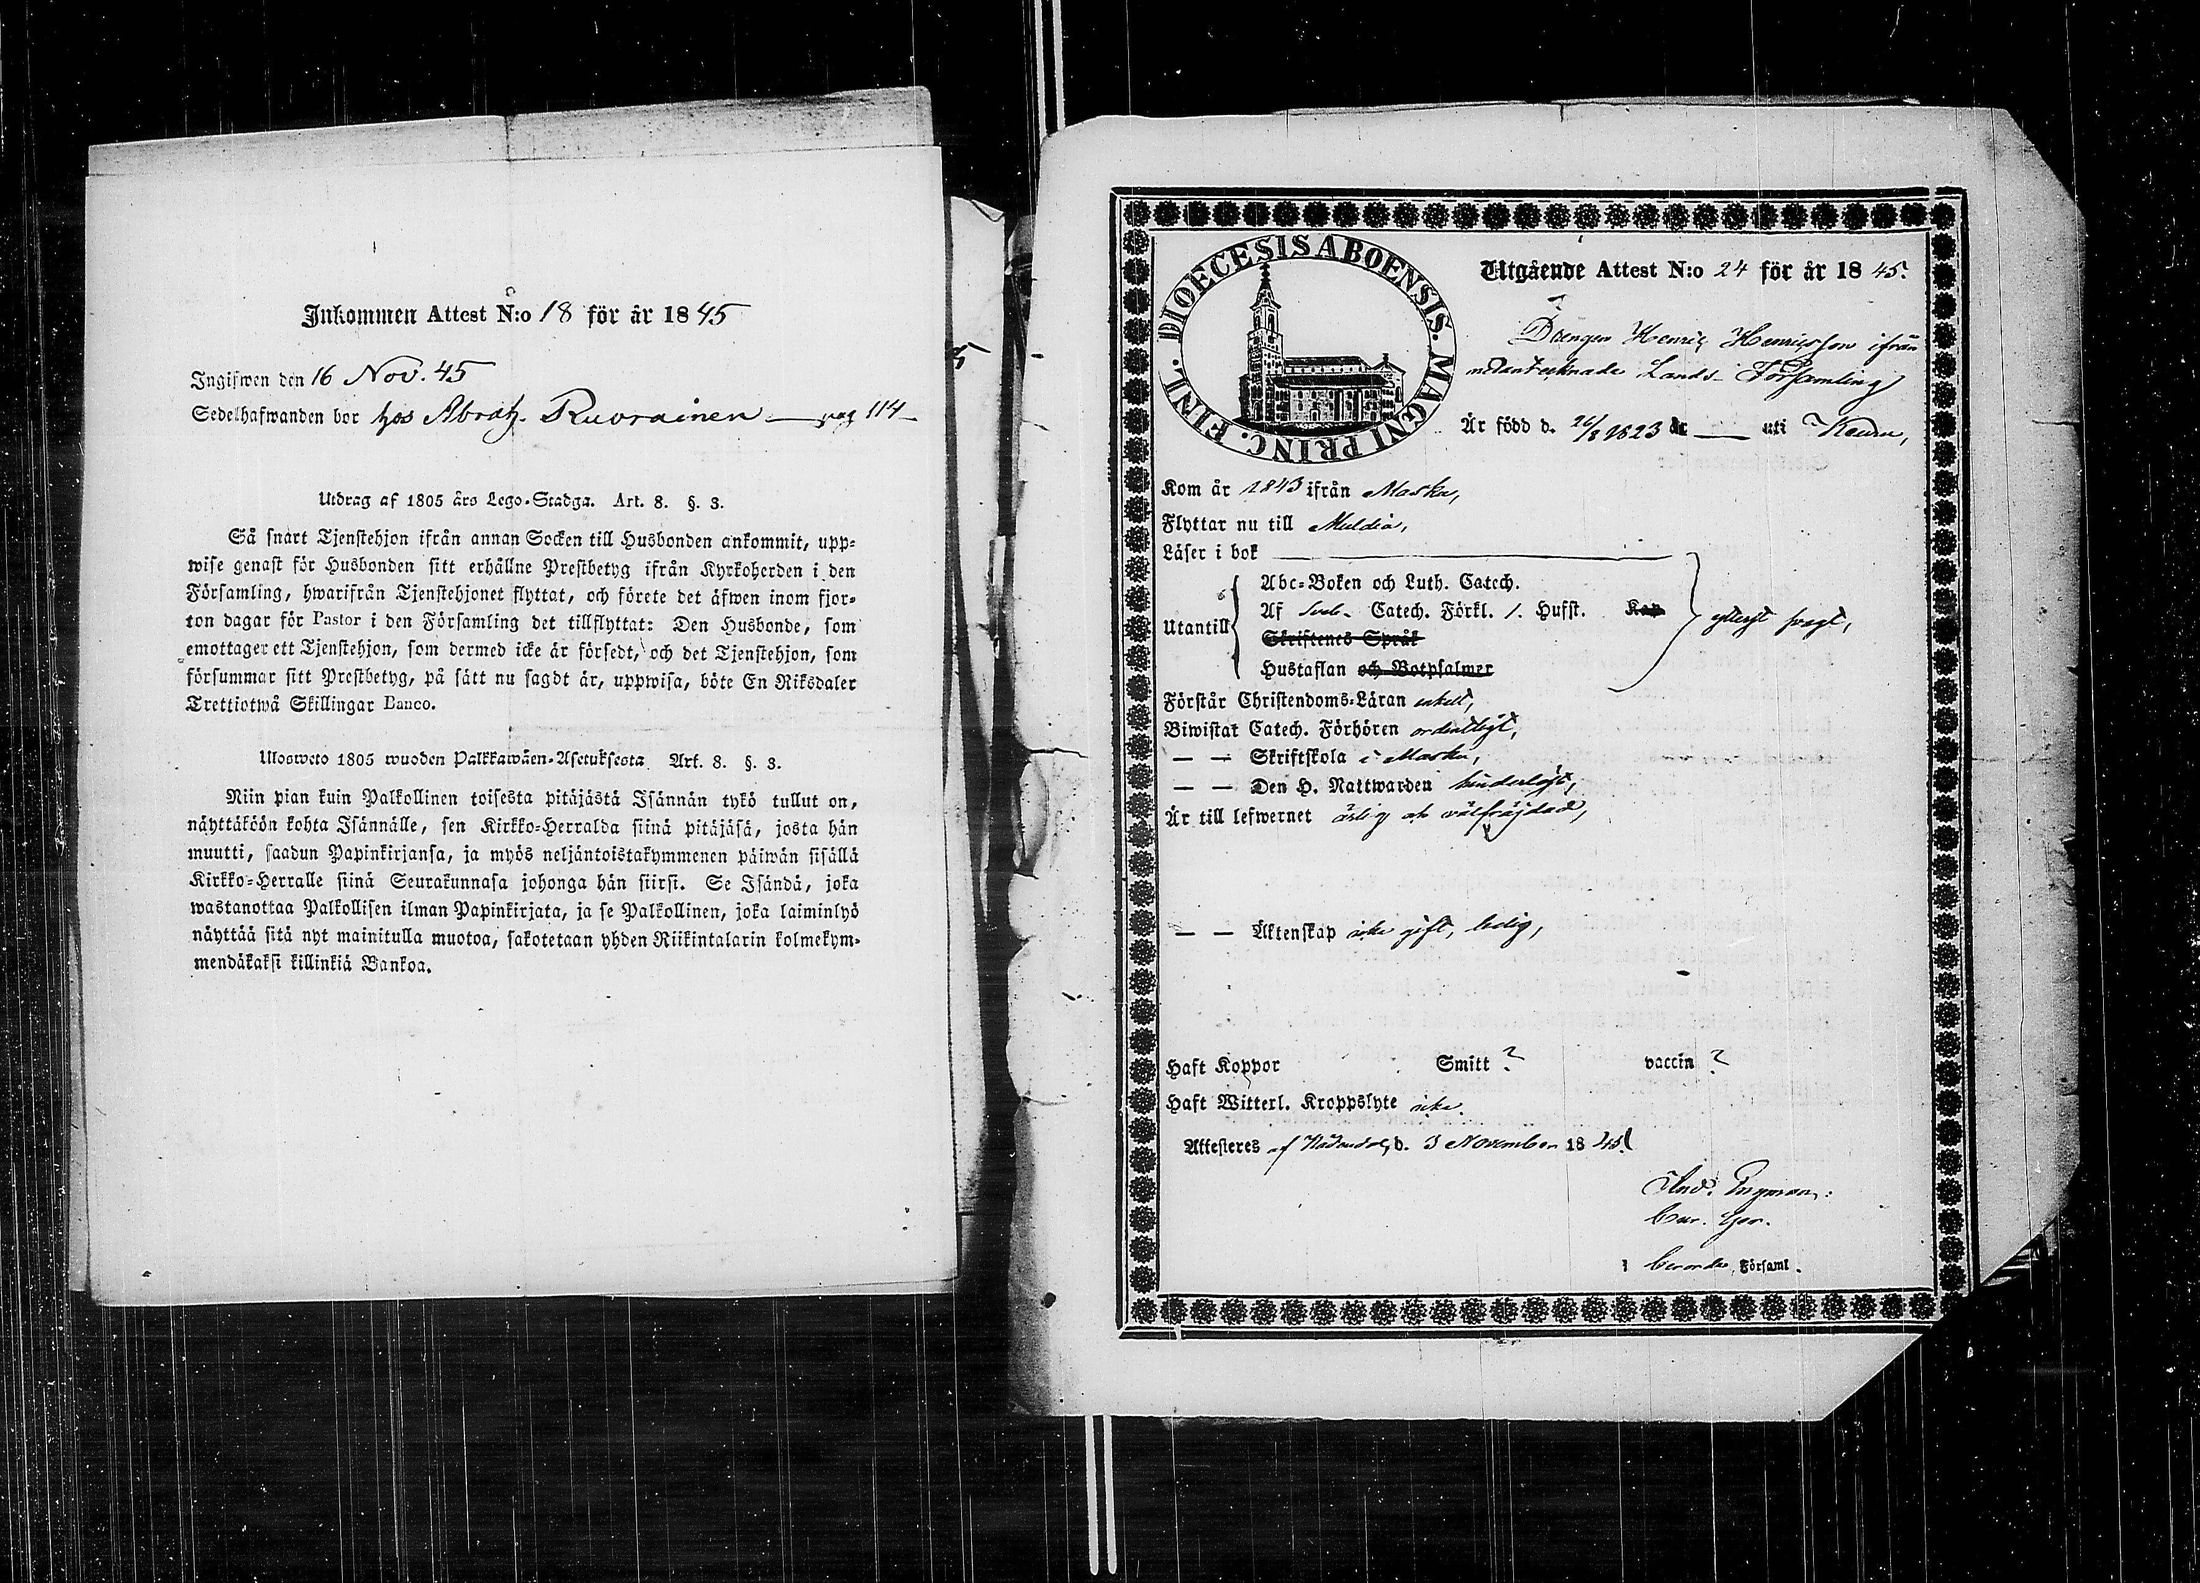 Inkommen Attest N:o 18 för år 1845
Ingifwen den 16 Nov. 45
Sedelhafwanden bor hos Abrah. Ruorainen — pag 114
Utdrag af 1805 års Lego-Stadga. Art. 8. §. 3.
Så snart Tjenstehjon ifrån annan Socken till Husbonden ankommit, upp-
wise genast för Husbonden sitt erhållne Prestbetyg ifrån Kyrkoherden i den
Församling, hwarifrån Tjenstehjonet flyttat, och förete det äfwen inom fjor-
ton dagar för Pastor i den Församling det tillflyttat: Den Husbonde, som
emottager ett Tjenstehjon, som dermed icke är försedt, och det Tjenstehjon, som
försummar sitt Prestbetyg, på sätt nu sagdt är, uppwisa, böte En Riksdaler
Trettiotwå Skillingar Banco.
Ulosweto 1805 wuoden Palkkawäen-Asetuksesta Art. 8. §. 3.
Niin pian kuin Palkollinen toisesta pitäjästä Isännän tykö tullut on,
näyttäköön kohta Isännälle, sen Kirkko-Herralda siinä pitäjäsä, josta hän
muutti, saadun Papinkirjansa, ja myös neljäntoistakymmenen päiwän sisällä
Kirkko-Herralle siinä Seurakunnasa johonga hän siirsi. Se Isändä, joka
wastanottaa Palkollisen ilman Papinkirjata, ja se Palkollinen, joka laiminlyö
näyttää sitä nyt mainitulla muotoa, sakotetaan yhden Riikintalarin kolmekym-
mendäkaksi killinkiä Bankoa.
DIOECESIS ABOENSIS. MAGNI PRINC. FINL.
Utgående Attest N:o 24 för år 1845.
Drengen Henric Henricsson ifrån
nedantecknade Lands-Församling
Är född d. 26/8 1823 år — uti
Kom år 1843 ifrån Masku,
Flyttar nu till
Läser i bok
Utantill
Abc-Boken och Luth. Catech.
Af Sveb. Catech. Förkl. 1. Husst. Kap
Skriftenes Språk
Hustaflan och Botpsalmer
ytterst svagt,
Förstår Christendoms-Läran enkelt,
Biwistat Catech. Förhören ordentligt,
— — Skriftskola i Masku,
— — Den H. Nattwarden hinderlöst,
Är till lefwernet ärlig och välfräjdad,
— — Äktenskap icke gift, ledig,
Haft Koppor Smitt ? vaccin ?
Haft Witterl. Kroppslyte icke.
Attesteres af Nådendal, d. 3 November 1845.
And. Ingman.
Församl.